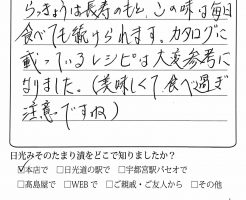 らっきょうは長寿のもと、この味は毎日
食べても続けられます。カタログに
載っているレシピは大変参考に
なりました。（美味しくて食べ過ぎ
注意ですね）
日光みそのたまり漬をどこで知りましたか？
☑本店で □日光道の駅で □宇都宮駅パセオで
□髙島屋で □WEBで □ご親戚・ご友人から □その他